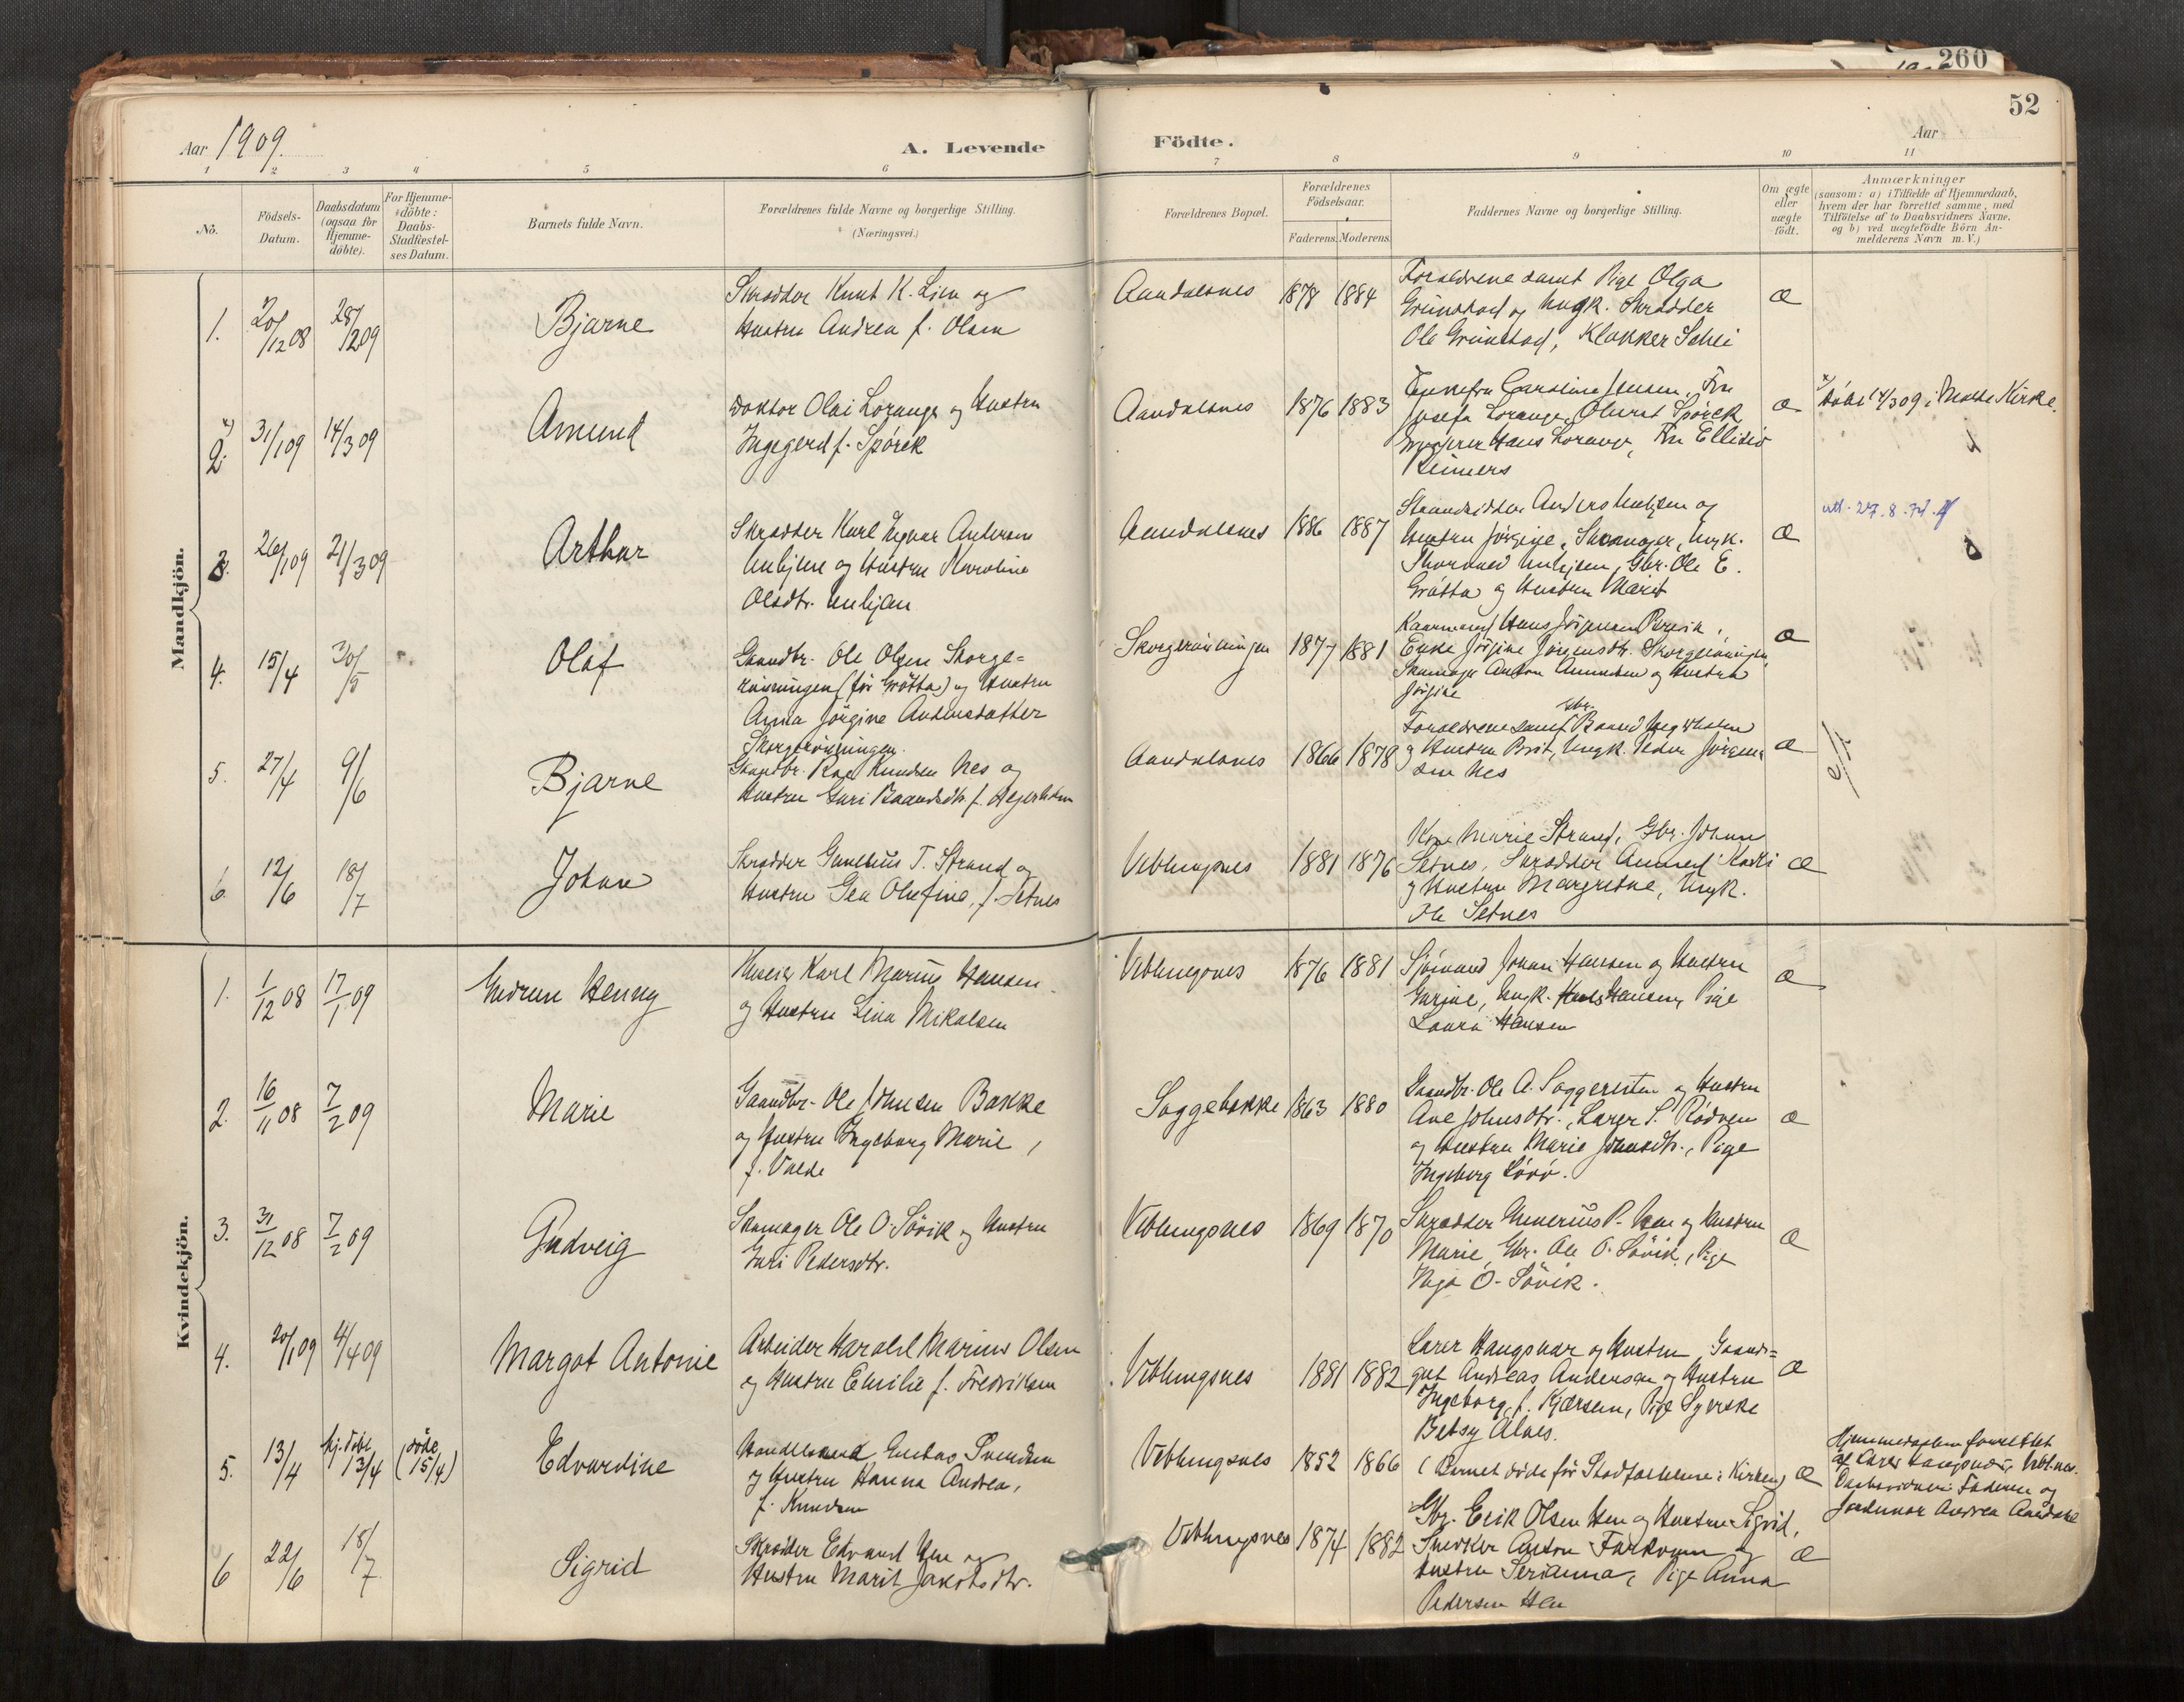 260
52
Aar 1909.
A. Levende Födte.
Aar
1 2 3 4 5 6 7 8 9 10 11
No.
Födsels-
Datum.
Daabsdatum
(ogsaa for
Hjemme-
döbte).
For Hjemme-
döbte:
Daabs-
Stadfæstel-
ses Datum.
Barnets fulde Navn.
Forældrenes fulde Navne og borgerlige Stilling.
(Næringsvei.)
Forældrenes Bopæl.
Forældrenes
Födselsaar.
Faderens. Moderens.
Faddernes Navne og borgerlige Stilling.
Om ægte
eller
uægte
födt.
Anmærkninger
(saasom: a) i Tilfælde af Hjemmedaab,
hvem der har forrettet samme, med
Tilföielse af to Daabsvidners Navne.
og b) ved uægtefödte Börn An-
melderens Navn m. V.)
Mandkjön.
1. 20/12 08 28/2 09 Bjarne
Skrædder Knut K. Lien og
Hustru Andrea f. Olsen
Aandalsnes 1878 1884
Forældrene samt Pige Olga
Grünstad og Ungk. Skrædder
Ole Grünstad, Klokker Schei
Æ
2. 31/1 09 14/3 09 Amund
Doktor Olai Lorange og Hustru
Ingegerd f. Spörck
Aandalsnes 1876 1883
Enkefru Caroline Jensen, Fru
Josefa Lorange, Oberst Spörck
Hans Lorange, Fru Ellidio
Reimers
Æ
Döbt 14/3 09 i Molde Kirke.
3. 26/1 09 21/3 09 Arthur
Skrædder Karl Ingvar Andersen
Unhjem og Hustru Karoline
Olsdtr. Unhjem
Aandalsnes 1886 1887
Strandsidder Anders Unhjem og
Hustru Jörgine, Skomager, Ungk.
Thorvald Unhjem, Gbr. Ole E.
Gröttа og Hustru Marit
Æ
att. 27.8.74
4. 15/4 30/5 Olaf
Gaardbr. Ole Olsen Skorge=
rönningen (för Grötta) og Hustru
Anna Jörgine Andersdatter
Skorgerönningen.
Skorgerönningen 1877 1881
Kaarmand Hans Jörgensen
Enke Jörgine Jörgensdtr. Skorgerönningen,
Skomager Anton Amundsen og Hustru
Jörgine
Æ
5. 27/4 9/6 Bjarne
Gaardbr. Roe Knudsen Nes og
Hustru Guri Baardsdtr. f. Hegerholm
Aandalsnes 1866 1878
Forældrene samt Gbr. Baard Hegerholm
og Hustru Brit, Ungk. Peder Jörgen=
sen Nes
Æ
6. 12/6 18/7 Johan
Skrædder Gunelius T. Strand og
Hustru Gea Olufine, f. Setnes
Veblungsnes 1881 1876
Kone Marie Strand, Gbr. Johan
Setnes, Skrædder Amund Kavli
og Hustru Margrethe, Ungk.
Ole Setnes
Æ
Kvindekjön.
1. 1/12 08 17/1 09 Gudrun Henny
Huseier Karl Marius Hansen
og Hustru Lina Mikalsen
Veblungsnes 1876 1881
Sjömand Johan Hansen og Hustru
Gurine, Ungk. Hans Hansen, Pige
Laura Hansen
Æ
2. 16/11 08 7/2 09 Marie
Gaardbr. Ole Johnsen Bakke
og Hustru Ingeborg Marie,
f. Valde
Soggebakke 1863 1880
Gaardbr. Ole A. Soggemoen og Hustru
Ane Johnsdtr., Lærer S. Rödven
og Hustru Marie Johnsdtr., Pige
Ingeborg
Æ
3. 31/12 08 7/2 09 Gudveig
Skomager Ole O. Sövik og Hustru
Guri Pedersdtr.
Veblungsnes 1869 1870
Skrædder Gunerius P. Hen og Hustru
Marie, Gbr. Ole O. Sövik, Pige
Inga O. Sövik.
Æ
4. 20/1 09 4/4 09 Margot Antonie
Arbeider Harald Marius Olsen
og Hustru Emilie f. Fredriksen
Veblungsnes 1881 1882
Lærer Haugsnar og Hustru, Gaard=
gut Andreas Andersen og Hustru
Ingeborg, f. Kjersem, Pige Syerske
Betsy Alnes.
Æ
5. 13/4 hj.döbt 13/4 (döde 15/4) Edvardine
Handelsmand Gustav Svendsen
og Hustru Hanna Andrea,
f. Knudsen
Veblungsnes 1852 1866
(Barnet döde för Stadfæstelsen i Kirken)
Æ
Hjemmedaaben forrettet
af Lærer Haugsnar, Vebl.nes.
Daabsvidner: Faderen og
Jordemor Andrea Aandahl
6 22/6 18/7 Sigrid
Skrædder Edvard Hen og
Hustru Marit Jakobsdtr.
Veblungsnes 1874 1882
Gbr. Erik Olsen Hen og Hustru Sigrid,
Snedker Anton Farkvam og
Hustru Serianna, Pige Anna
Pedersen Hen
Æ